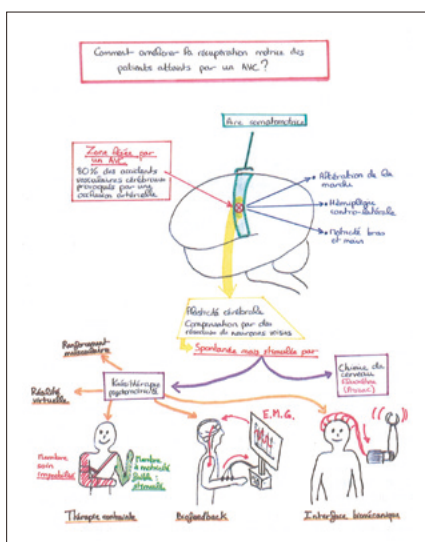 Comment améliorer la récupération motrice des
patients atteints par un AVC ?
Aire somatomotrice
Zone lésée par
un AVC
80% des accidents
vasculaires cérébraux
provoqués par une
occlusion artérielle
Altération de la
marche
Hémiplégie
contro-latérale
Motricité bras
et main
Plasticité cérébrale
Compensation par des
réseaux de neurones voisins
Spontanée mais stimulée par
Renforcement
musculaire
Réalité
virtuelle
Kinésithérapie
psychomotricité
Chimie du
cerveau
Fluoxétine
(Prozac)
E.M.G.
Membre
sain
immobilisé
Membre
à motricité
faible :
stimulé
Thérapie contrainte
Biofeedback
Interface biomécanique